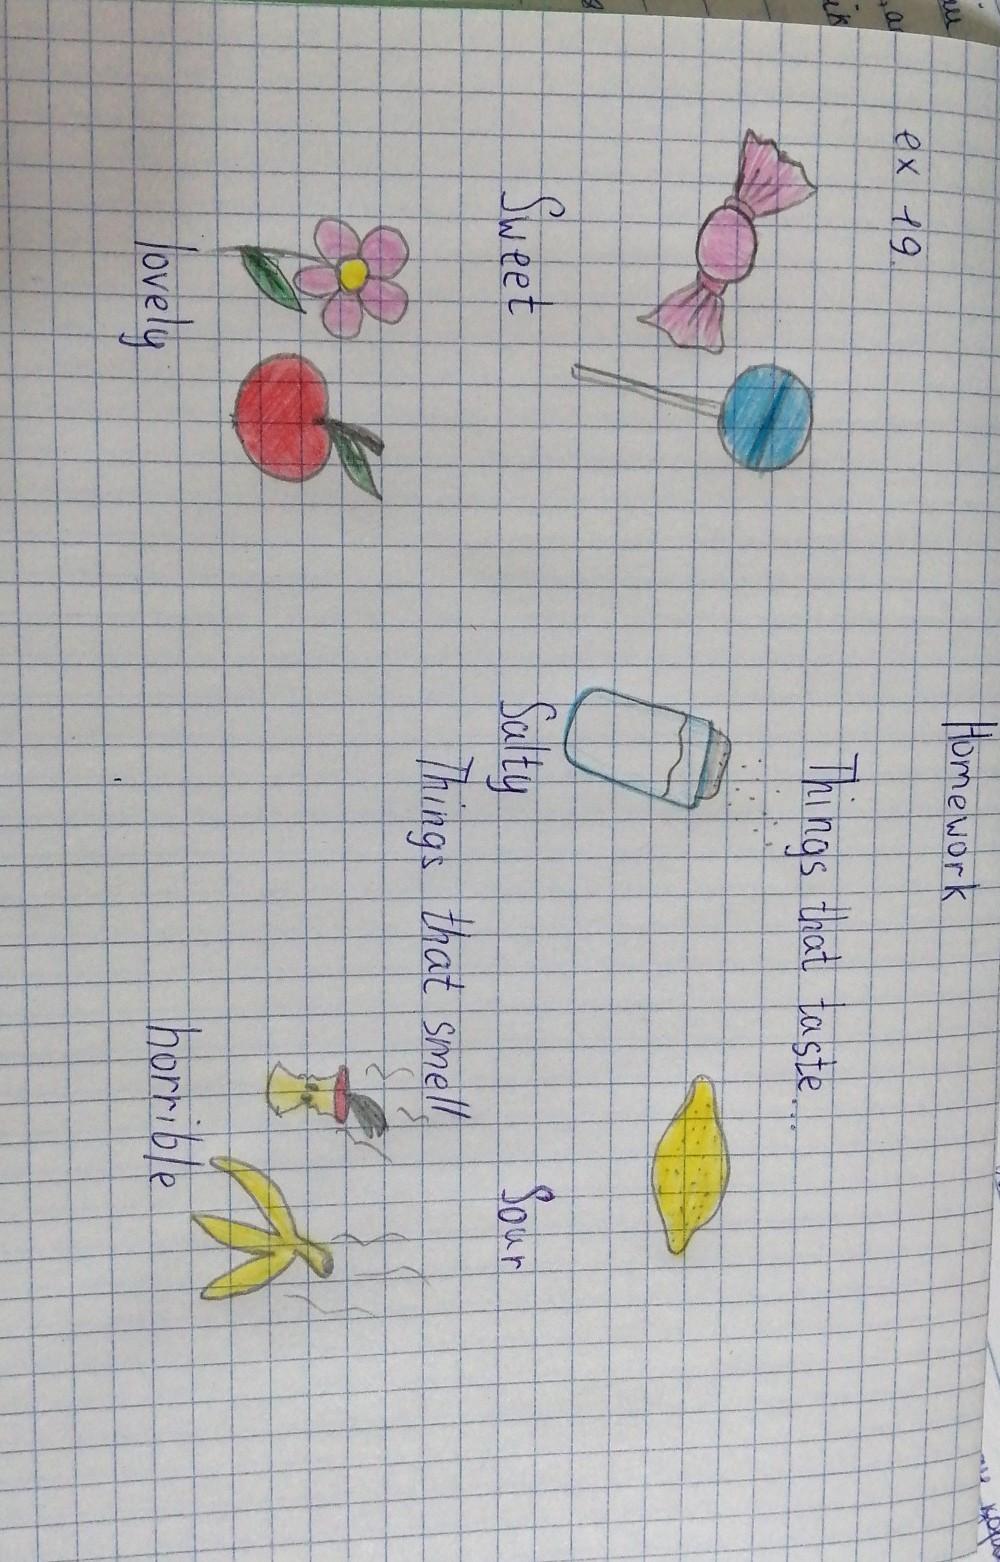 Homework
ex 19.
Things that taste...
Sweet
Salty
Sour
Things that smell
lovely
horrible